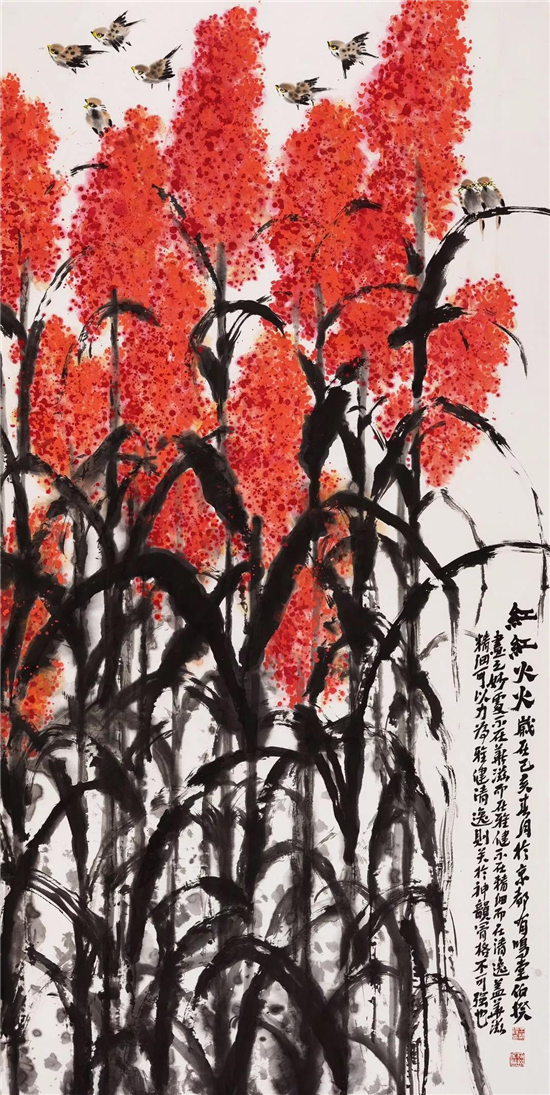 红红火火 歲在己亥春月於京都有鸣堂伯揆
畫之妙處不在華滋而在雅健不在精細而在清逸蓋華滋
精細可以力為雅健清逸則关於神韻骨格不可強也